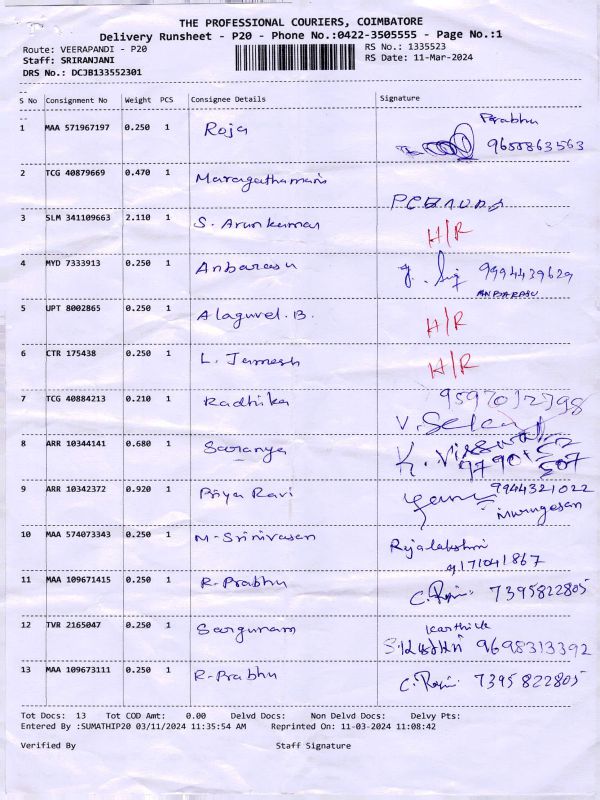 THE PROFESSIONAL COURIERS, COIMBATORE
Delivery Runsheet - P20 - Phone No.:0422-3505555 - Page No.:1
Route: VEERAPANDI - P20
RS No.: 1335523
Staff: SRIRANJANI
RS Date: 11-Mar-2024
DRS No.: DCJB133552301
S No Consignment No Weight PCS Consignee Details Signature
1 MAA 571967197 0.250 1 Roja Prabhu
9655863563
2 TCG 40879669 0.470 1 Maragathamani
3 SLM 341109663 2.110 1 S. Arunkumar H/R
4 MYD 7333913 0.250 1 Anbarasu 9994439629
ANBARASU
5 UPT 8002865 0.250 1 Alaguvel. B. H/R
6 CTR 175438 0.250 1 L. Jamesh H/R
7 TCG 40884213 0.210 1 Radhika 9597012798
8 ARR 10344141 0.680 1 Saranya
9 ARR 10342372 0.920 1 Priya Ravi 9944321022
murugesan
10 MAA 574073343 0.250 1 M-Srinivasan Rajalakshmi
9171041867
11 MAA 109671415 0.250 1 R-Prabhu 7395822805
12 TVR 2165047 0.250 1 Sargunam Karthick
9698313392
13 MAA 109673111 0.250 1 R-Prabhu 7395822805
Tot Docs: 13 Tot COD Amt: 0.00 Delvd Docs: Non Delvd Docs: Delvy Pts:
Entered By :SUMATHIP20 03/11/2024 11:35:54 AM Reprinted On: 11-03-2024 11:08:42
Verified By Staff Signature